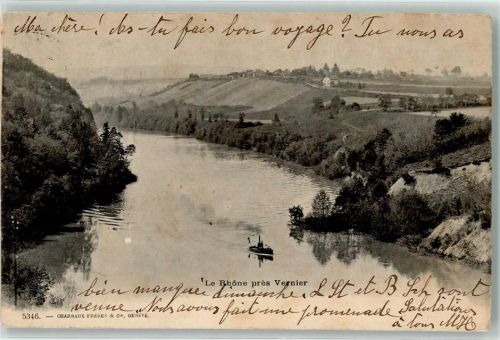 Ma chère! As-tu fais bon voyage? Tu nous as
Le Rhône près Vernier
bien manquée dimanche. L. St et B. Sch sont
venue. Nous avons fait une promenade Salutations
à tous MH
5346. — CHARNAUX FRÈRES & Co, GENÈVE.